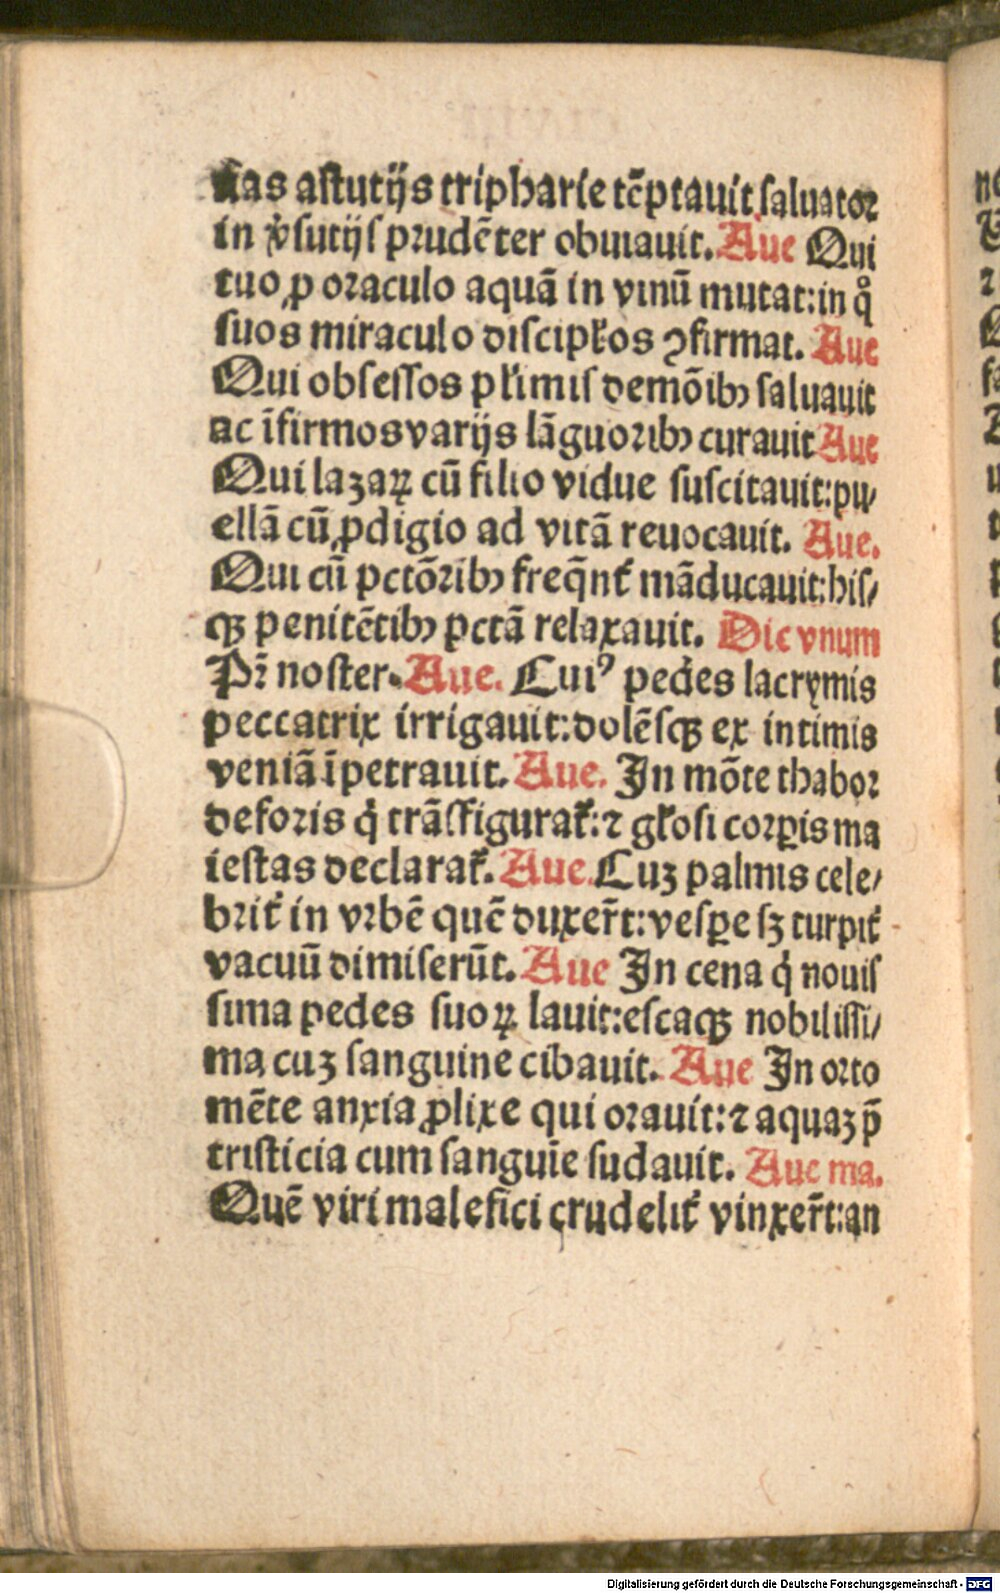 nas astutijs tripharie tēptauit saluator
in v̓sutijs prudēter obuiauit. Aue Qui
tuo ꝓ oraculo aquā in vinū mutat: in qͦ
suos miraculo discipłos ꝯfirmat. Aue
Qui obsessos płimis demōibꝫ saluauit
ac īfirmos varijs lāguoribꝫ curauit Aue
Qui lazaꝝ cū filio vidue suscitauit: pu/
ellā cū ꝓdigio ad vitā reuocauit. Aue.
Qui cū pctōribꝫ freq̄nt̓ māducauit: his/
qꝫ penitētibꝫ pctā relaxauit. Dic vnum
Pr̄ noster. Aue. Cuiꝰ pedes lacrymis
peccatrix irrigauit: dolēsqꝫ ex intimis
veniā īpetrauit. Aue. In mōte thabor
deforis q̓ trāsfigurat̓: ⁊ głosi corꝑis ma
iestas declarat̓. Aue. Cuꝫ palmis cele/
brit̓ in vrbē quē duxer̄t: vesꝑe sꝫ turpit̓
vacuū dimiserūt. Aue In cena q̓ nouis
sima pedes suoꝝ lauit: escaqꝫ nobilissi/
ma cuꝫ sanguine cibauit. Aue In orto
mēte anxia ꝓlixe qui orauit: ⁊ aquaꝫ p̄
tristicia cum sanguīe sudauit. Aue ma.
Quē viri malefici crudelit̓ vinxer̄t: an
Digitalisierung gefördert durch die Deutsche Forschungsgemeinschaft - DFG